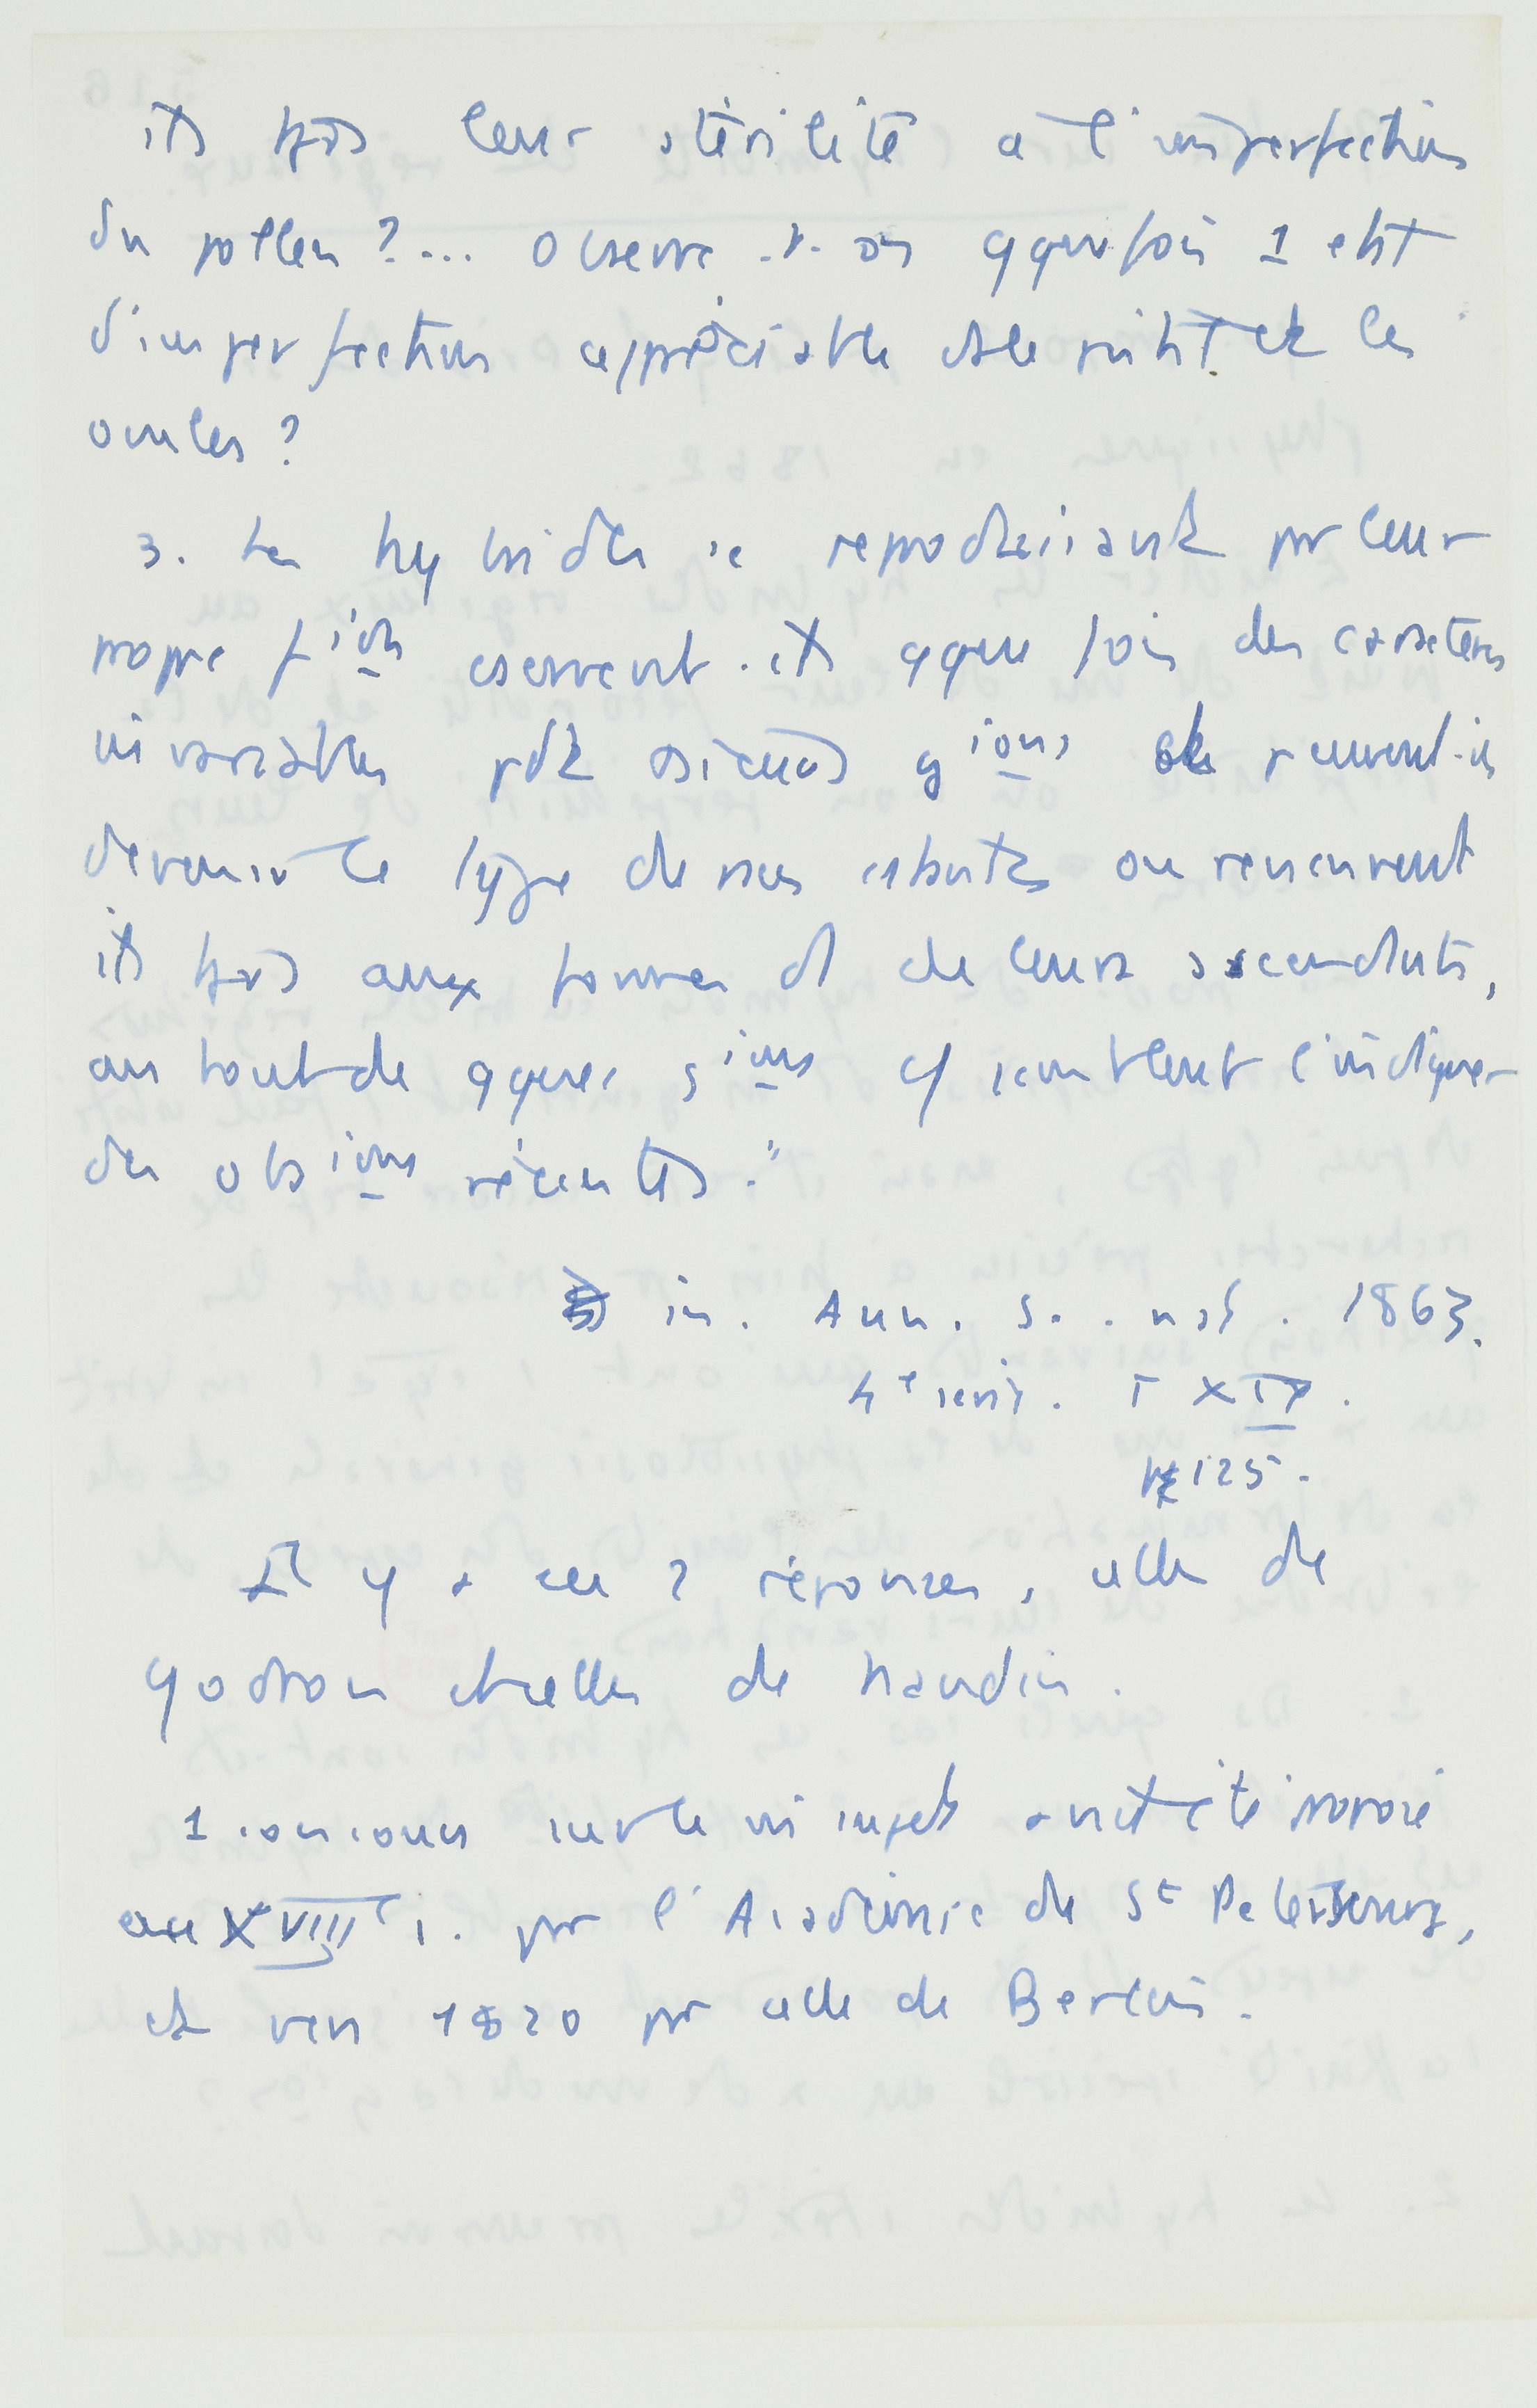 ils tjrs leur stérilité à l'imperfection
du pollen ?... observe-t-on qquefois 1 état
d'imperfection appréciable ds le pistil et les
ovules ?
3. Les hybrides se reproduisant pr leur
propre f<sup>ion</sup> cservent-ils qque fois des caractères
invariables pdt plusieurs g<sup>ions</sup> et peuvent-ils
devenir le type de races cstantes ou reviennent
ils tjrs aux formes d de leurs ascendants,
au bout de qques g<sup>ions</sup> c/ semblent l'indiquer
des obs<sup>ions</sup> récentes."
in. Ann. s. . nat . 1863.
4e série . T XIX .
p 125.
Il y a eu 2 réponses, celle de
Godron et celle de Naudin.
1 concours sur le m sujet avait été proposé
au XVIIIe s. pr l'Académie de St Petersbourg,
et vers 1820 pr celle de Berlin.